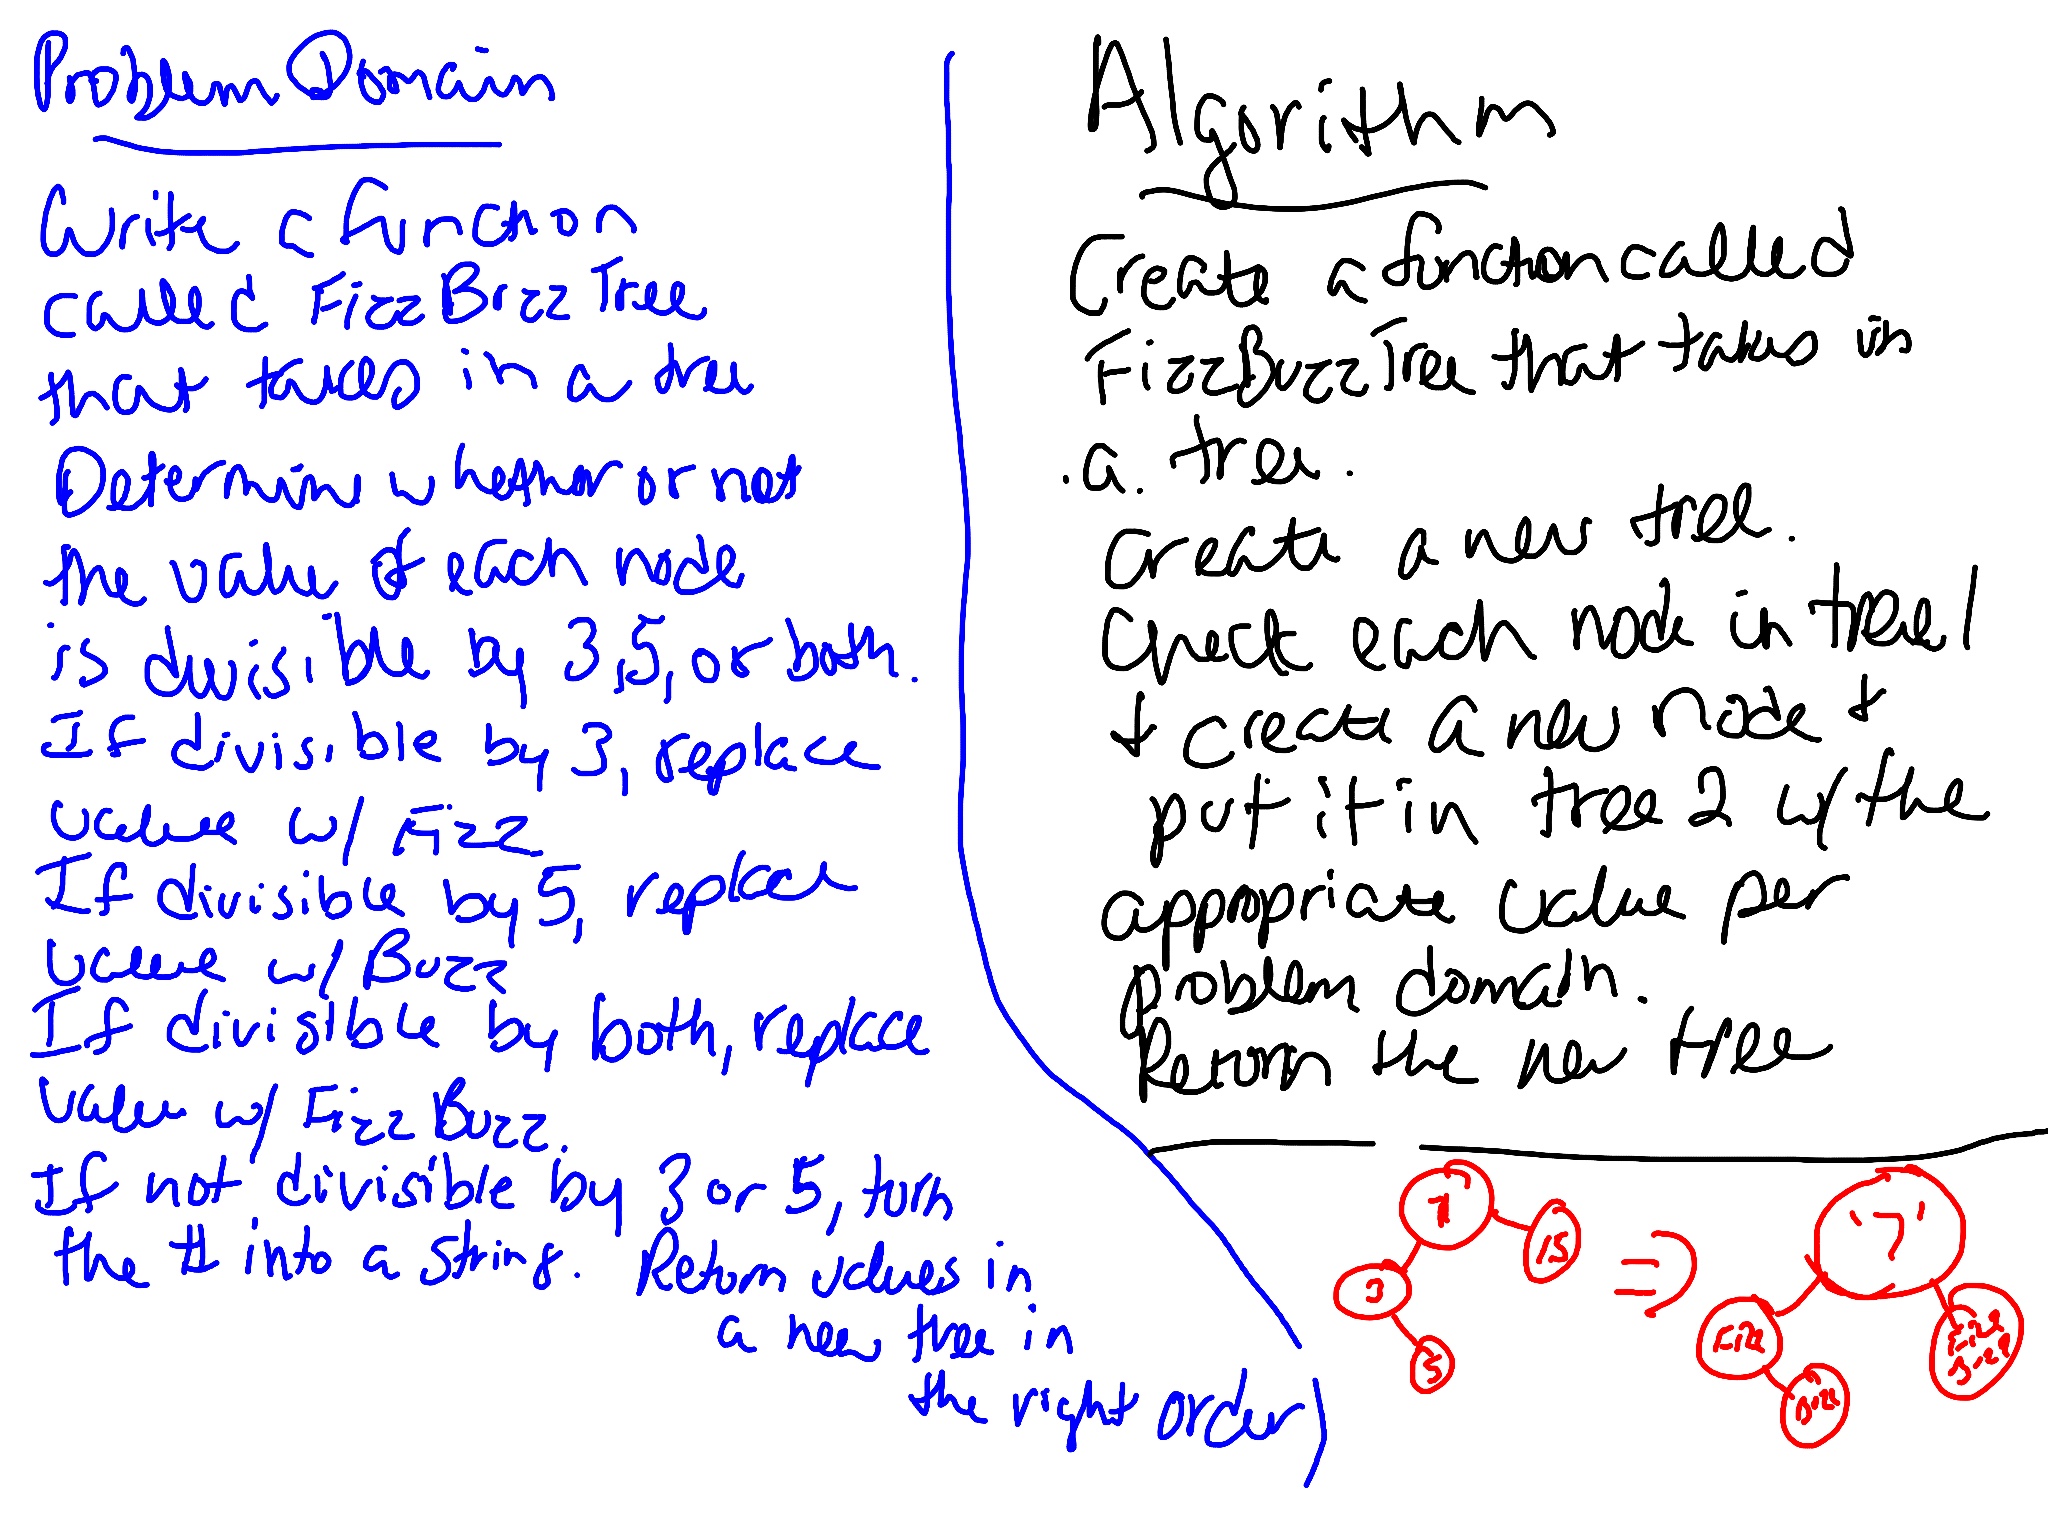 Problem Domain
Write a function
called FizzBuzz Tree
that takes in a tree
Determine whether or not
the value of each node
is divisible by 3,5, or both.
If divisible by 3, replace
value w/ Fizz
If divisible by 5, replace
value w/ Buzz
If divisible by both, replace
value w/ Fizz Buzz.
If not divisible by 3 or 5, turn
the # into a string. Return values in
a new tree in
the right order
Algorithm
Create a function called
FizzBuzzTree that takes in
a tree.
Create a new tree.
Check each node in tree 1
+ create a new node +
put it in tree 2 w/ the
appropriate value per
problem domain.
Return the new tree
7
15
3
5
'7'
Fizz
Fizz
Buzz
Buzz